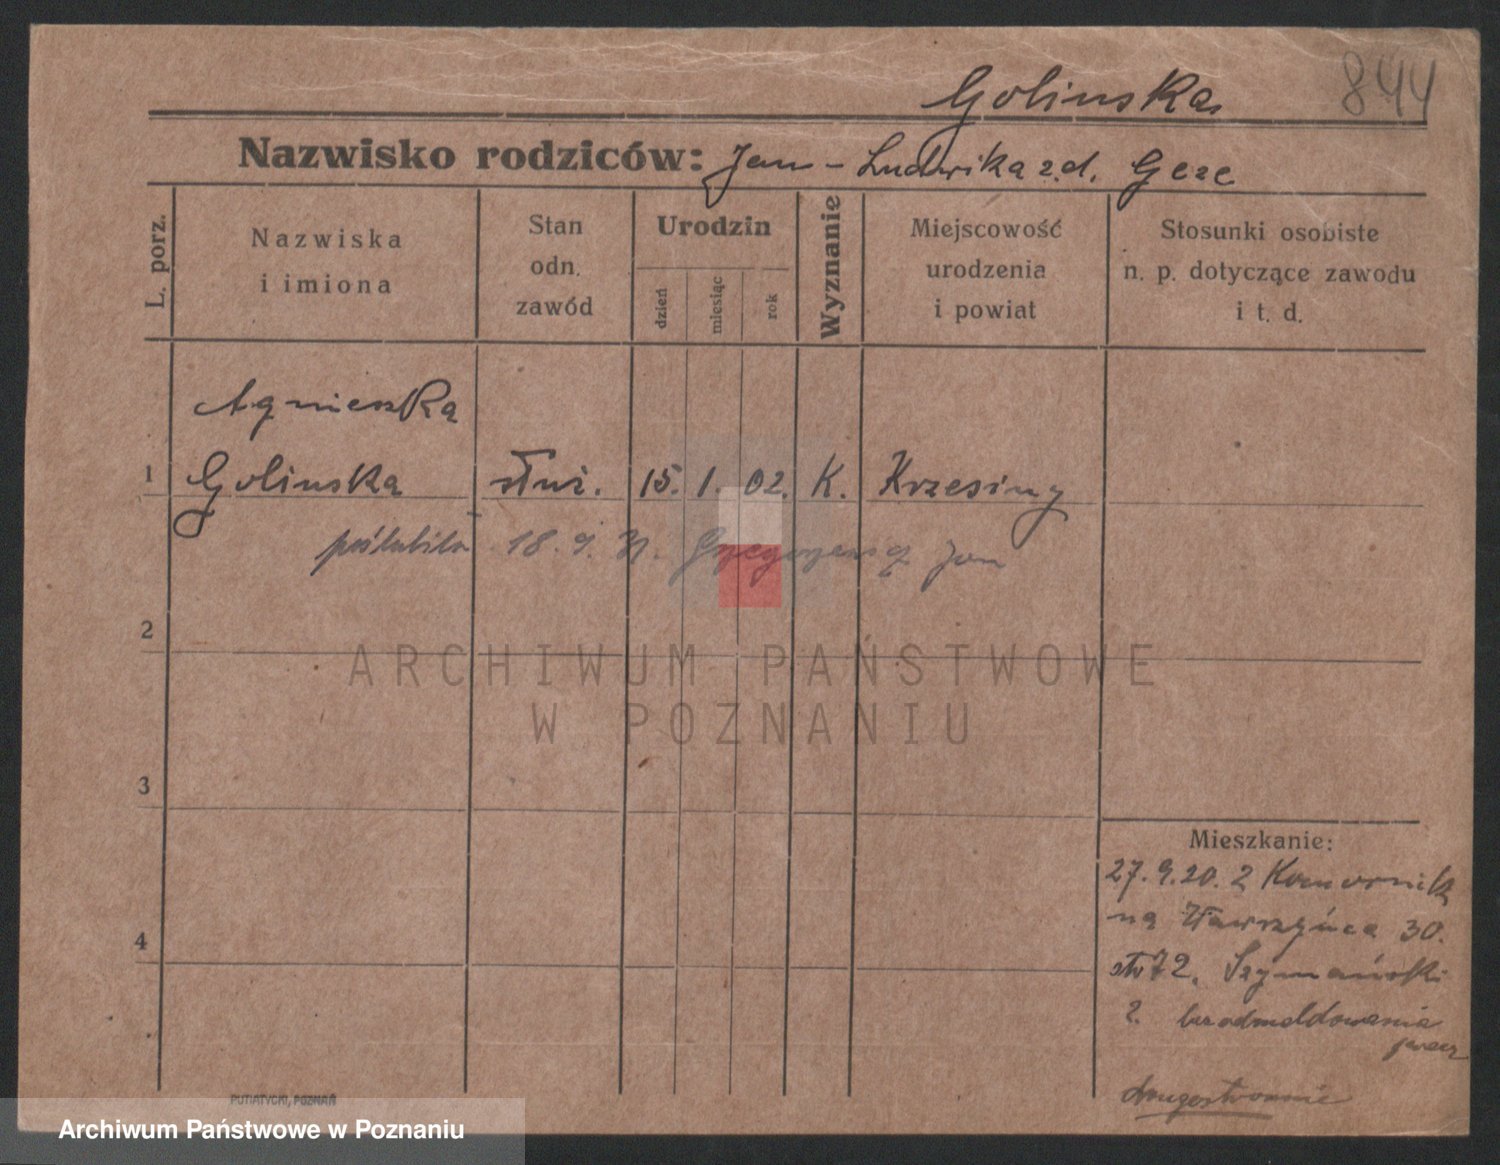 Golinska 844
Nazwisko rodziców: Jan - Ludwika z.d. Geze
L. porz.
Nazwiska
i imiona
Stan
odn.
zawód
Urodzin
dzień
miesiąc
rok
Wyznanie
Miejscowość
urodzenia
i powiat
Stosunki osobiste
n. p. dotyczące zawodu
i t. d.
Agnieszka
1 Golinska służ. 15. 1. 02. K. Krzesiny
poślubiła 18. 9. Jan
2
ARCHIWUM PAŃSTWOWE
W POZNANIU
3
Mieszkanie:
27.9.20. z Komornik
na Wawrzyńca 30.
str 72. Szymański
bez odmeldowania
4
drugostronnie
PUTIATYCKI, POZNAŃ
Archiwum Państwowe w Poznaniu